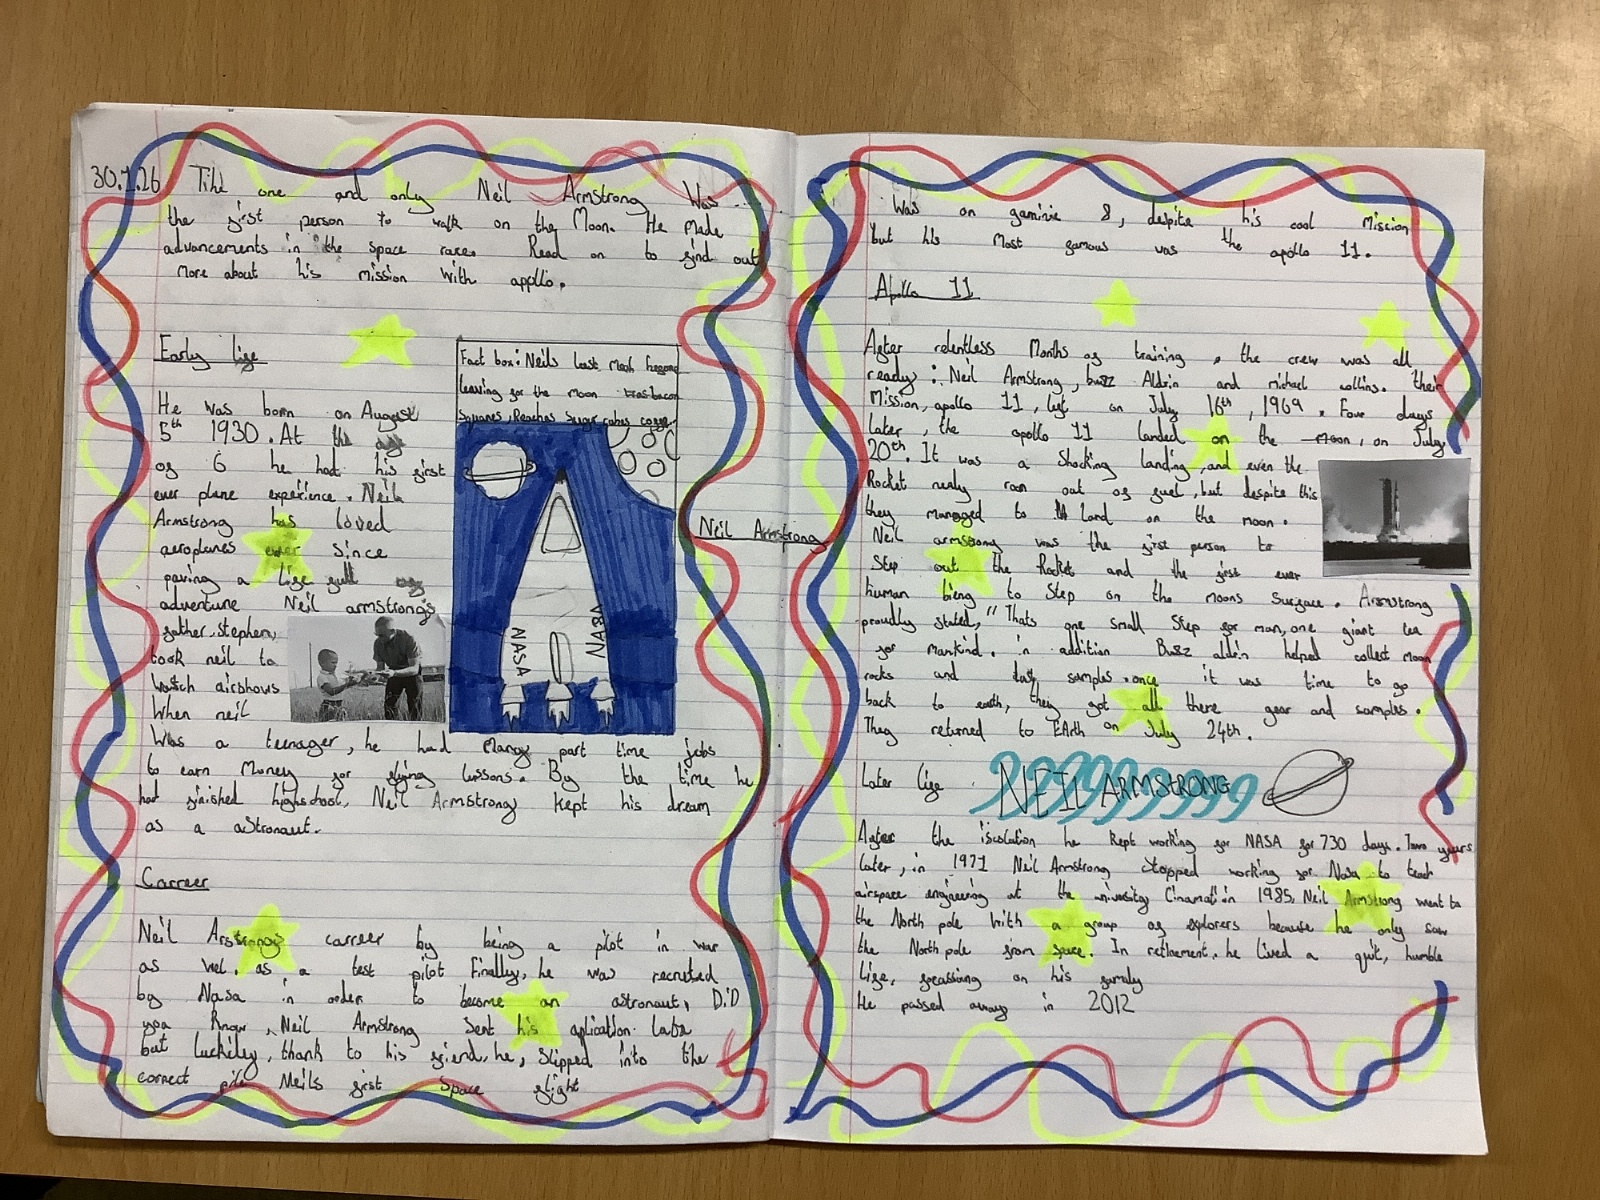 30.1.26 The one and only Neil Armstrong Was
the first person to walk on the Moon. He Made
advancements in the space race. Read on to find out
More about his mission With appllo.
Early life
He was born on August
5th 1930. At the age
of 6 he had his first
ever plane experience. Neil
Armstrong has loved
aeroplanes ever Since
paving a life full of
adventure Neil armstrong's
father, Stephen,
took neil to
Watch airshows
When neil
Was a teenager, he had Many part time jobs
to earn Money for flying lessons. By the time he
had finished highschool, Neil Armstrong kept his dream
as a aStronaut.
Fact box: Neils Last Meal before
leaving for the Moon was bacon
Squares, Peaches Sugar cubes coffe
NASA
NASA
Carreer
Neil Arstrongs carreer by being a pilot in war
as wel. as a test pilot Finally, he was recruted
by Nasa in order to become an astronaut, DiD
you Know, Neil Armstrong Sent his aplication late
but luckiley, thank to his friend, he, Slipped into the
correct pile Neils first Space flight
Neil Armstrong
Was on geminie 8, despite his cool Mission
but his Most famous was the apollo 11.
Apollo 11
After relentless Months of training, the crew was all
ready: Neil Armstrong, buzz Aldrin and michael collins. their
Mission, apollo 11, left on July 16th, 1969. Four days
later, the apollo 11 landed on the Moon, on July
20th. It was a Shocking landing, and even the
Rocket nearly ran out of fuel, but despite this
they managed to land on the moon.
Neil armstrong was the first person to
Step out the Rocket and the first ever
human bieng to Step on the moons Surface. Armstrong
proudly stated, "Thats one small Step for man, one giant lea
for mankind. in addition Buzz aldrin helped collect moon
rocks and dust samples. once it was time to go
back to earth, they got all there gear and samples.
They returned to EArth on July 24th.
Later life NEIL ARMSTRONG
After the iscolation he kept working for NASA for 730 days. Two years
later, in 1971 Neil Armstrong Stopped working for Nasa to teach
airspace engineering at the university Cinamati in 1985, Neil Armstrong went to
the North pole With a group of explorers because he only saw
the North pole from space. In retirement, he lived a quit, humble
life, focassing on his family
He passed away in 2012